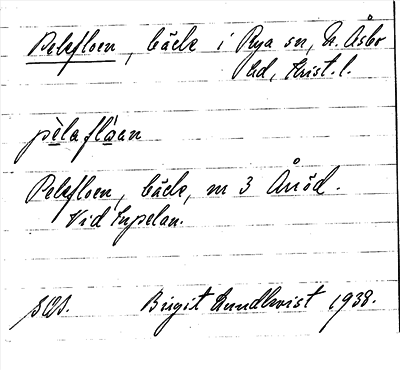 Pelefloen, bäck i Rya sn, N. Åsbo
hd, Krist. l.
pèlaflóan
Pelefloen, bäck, m 3 Årröd.
Vid
Birgit Lundkvist 1938.